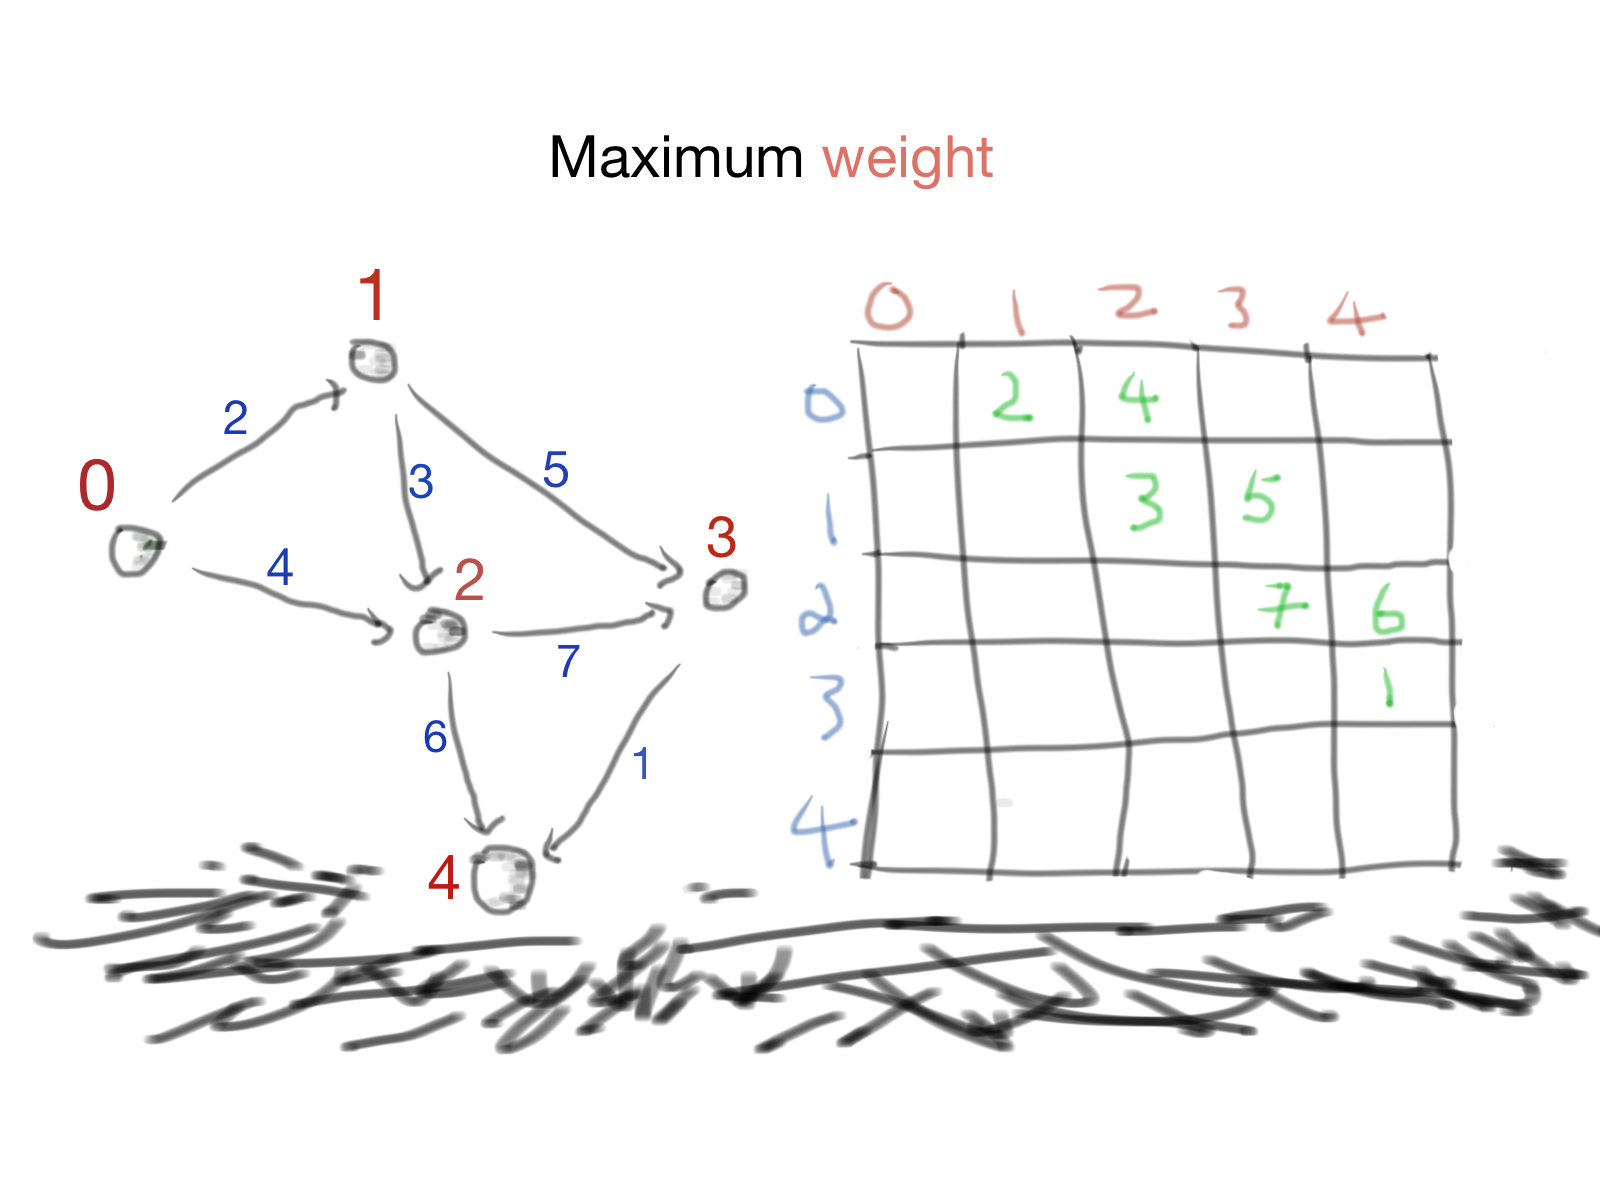 Maximum weight
1
2
3
5
0
4
2
3
7
6
1
4
0 1 2 3 4
0 2 4
1 3 5
2 7 6
3 1
4